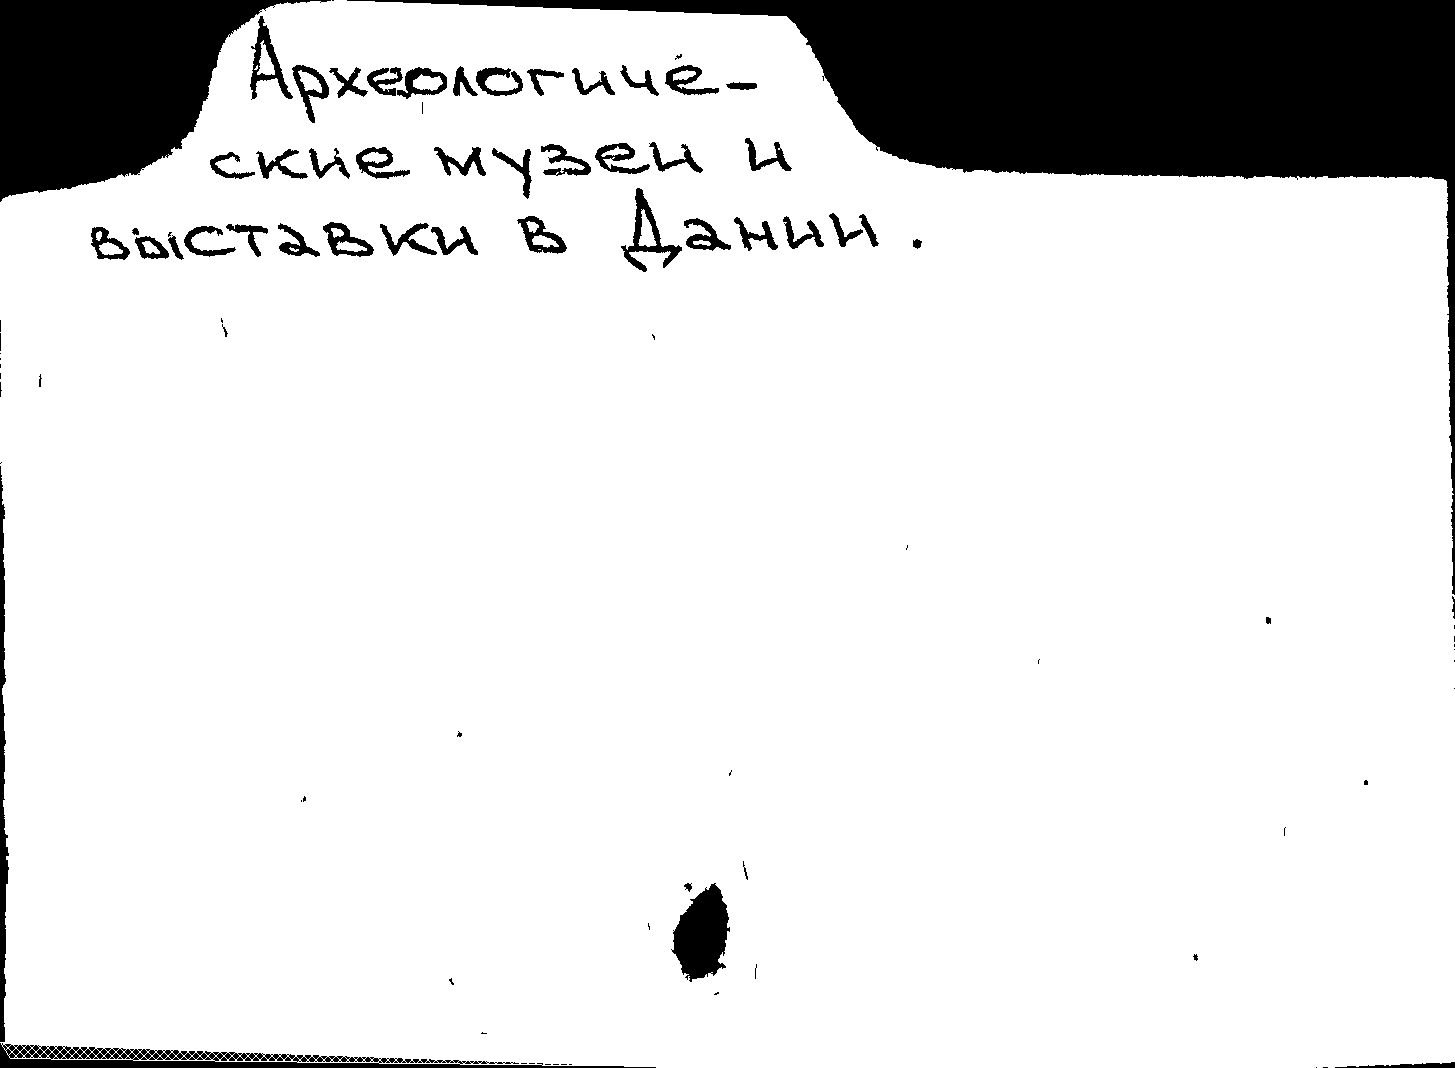 Археологиче-
ские музеи и
выставки в Дании.